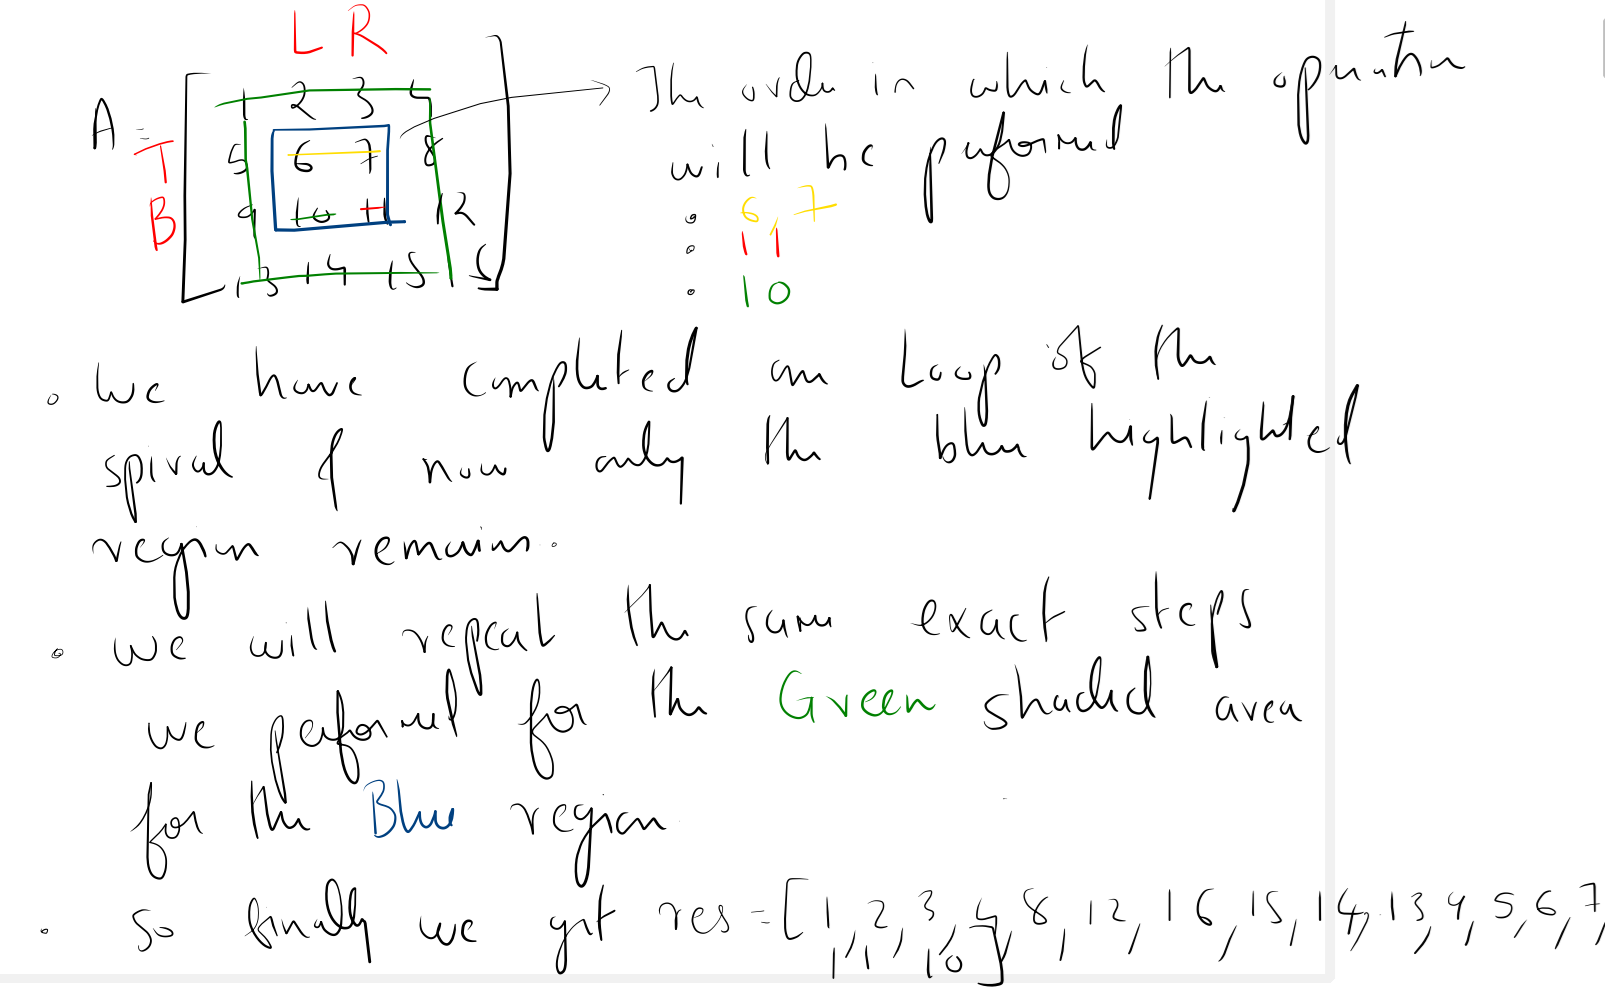 L R
A = 1 2 3 4 → The order in which the operation
T 5 6 7 8 will be performed
• 6, 7
B 9 10 11 12
• 11
13 14 15 16 • 10
• We have completed one Loop of the
spiral & now only the blue highlighted
region remains.
• we will repeat the same exact steps
we performed for the Green shaded area
for the Blue region
• So finally we get res = [1, 2, 3, 4, 8, 12, 16, 15, 14, 13, 9, 5, 6, 7,
11, 10]